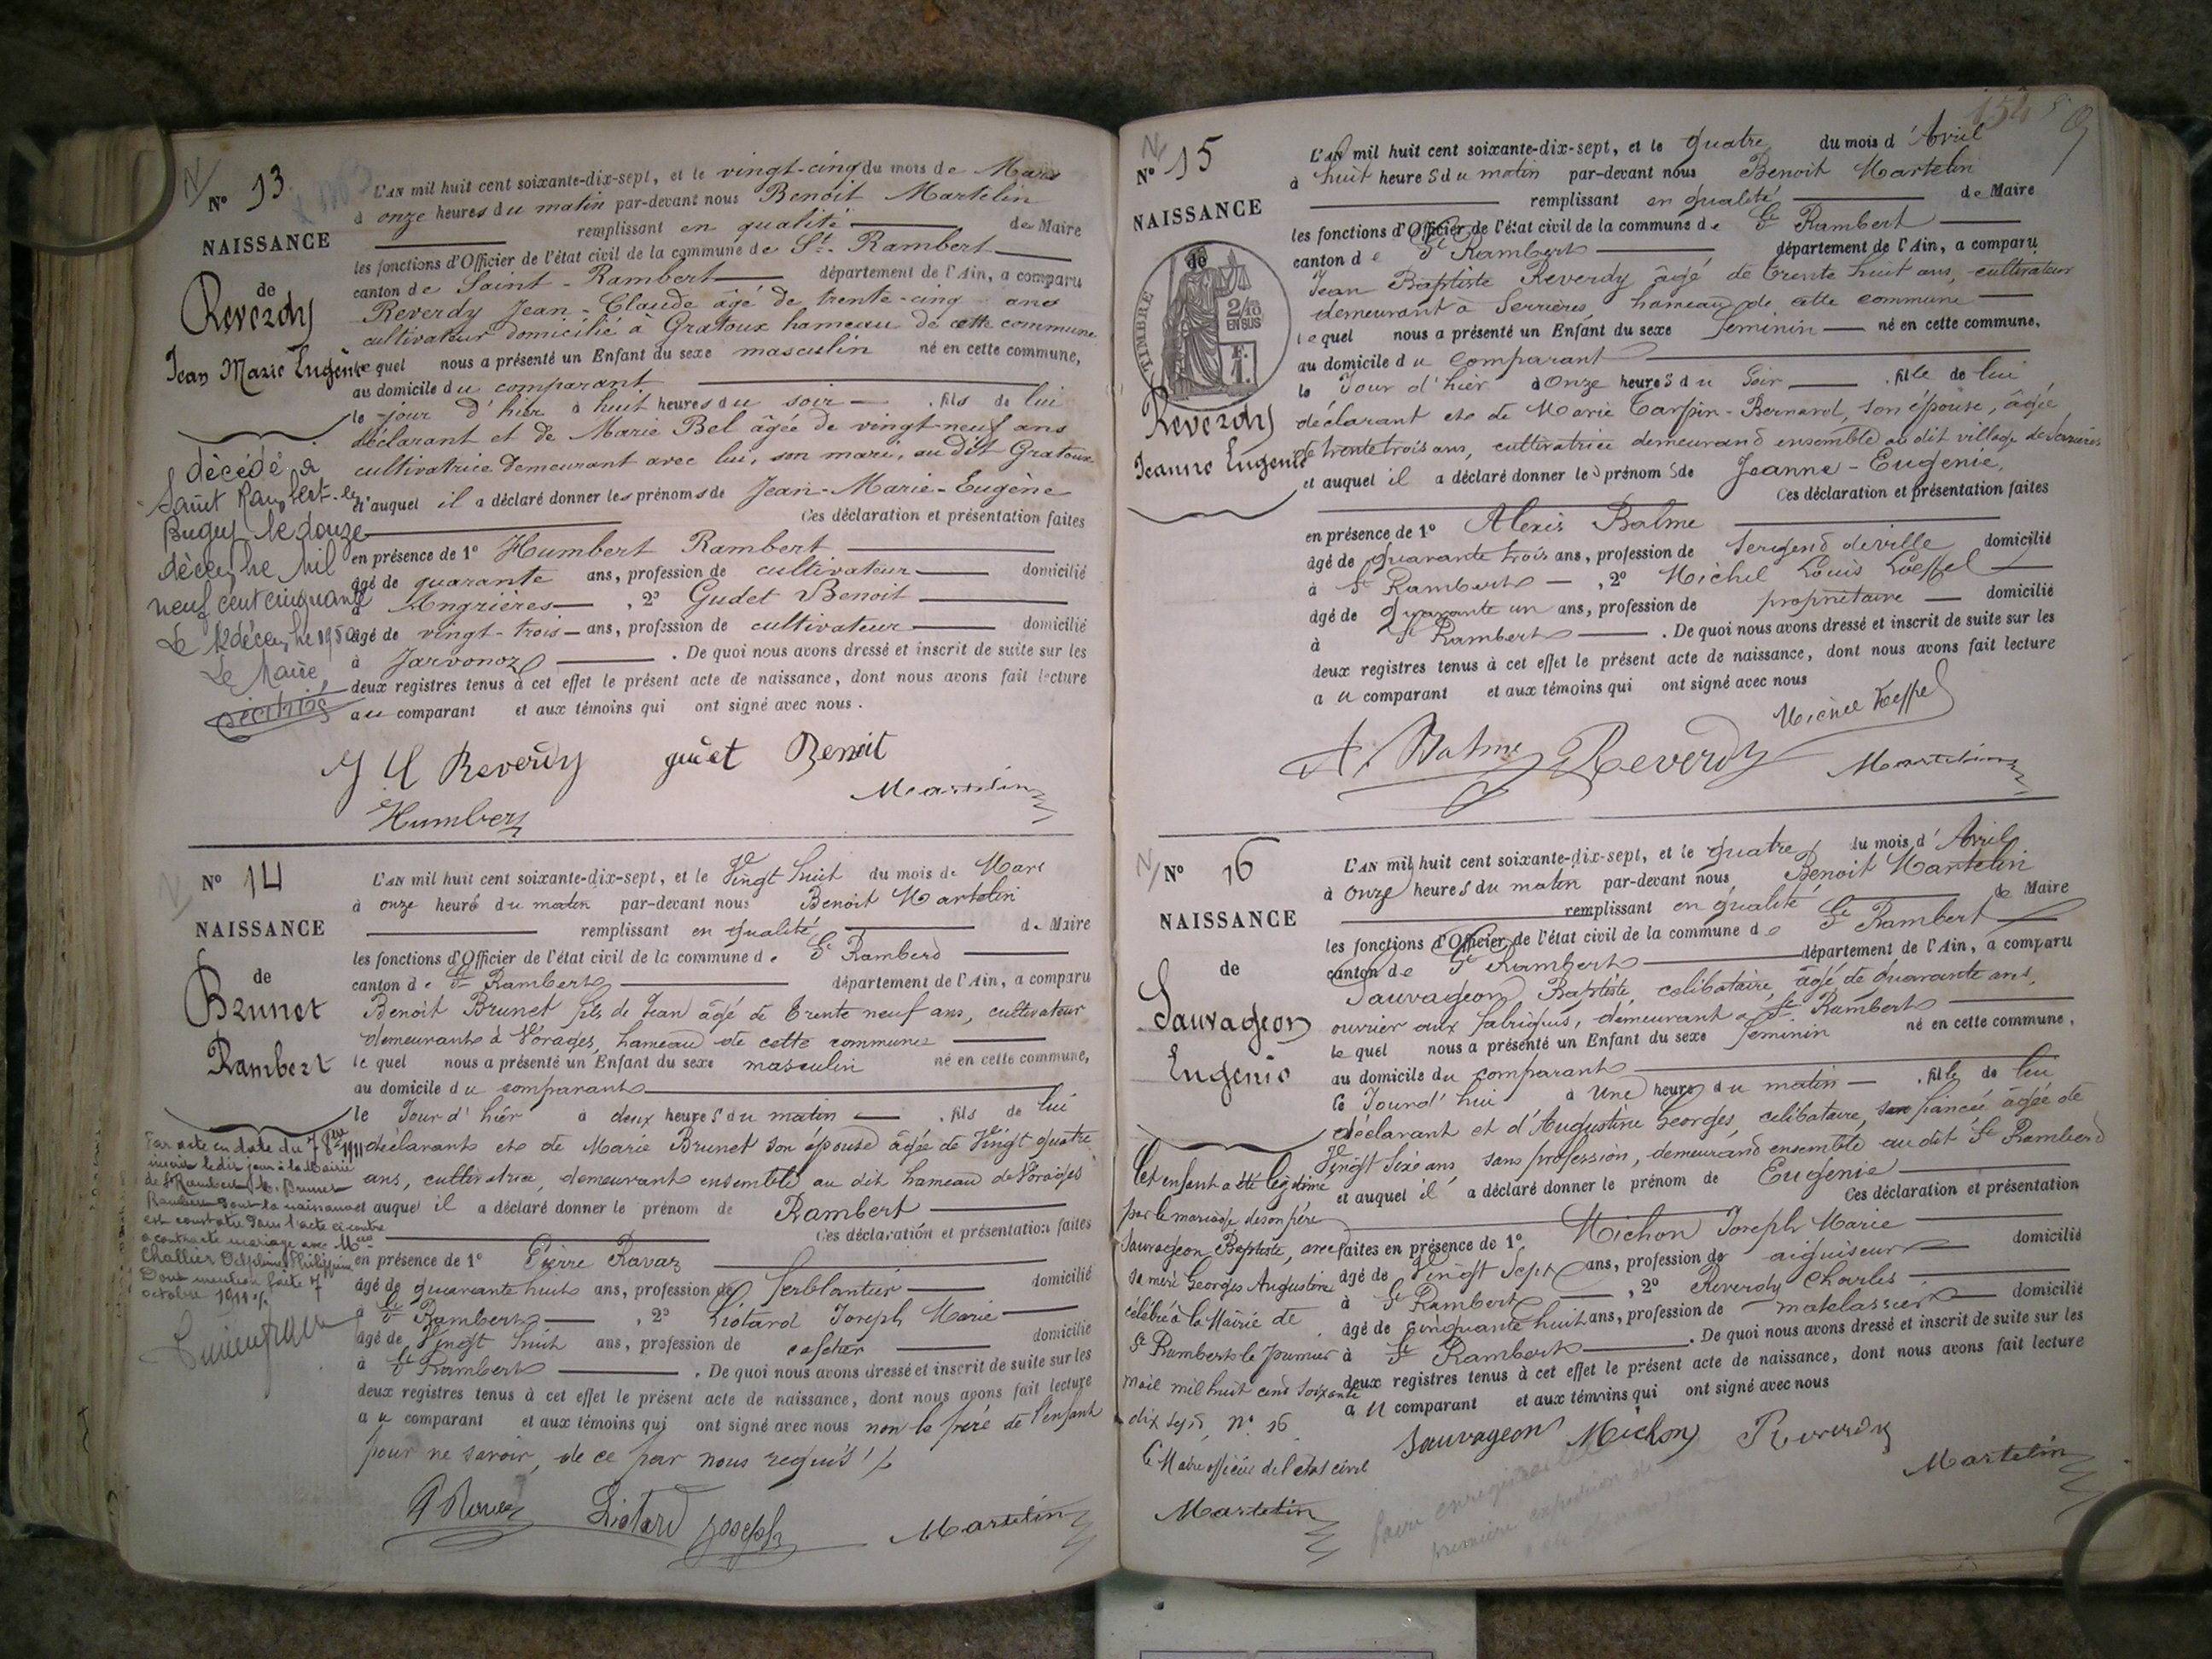 N° 13
NAISSANCE
de
Reverdy
Jean Marie Eugène
décédé à
Saint Rambert-le-
Bugey le douze
décembre mil
neuf cent cinquante
Le 12 décembre 1950
Le Maire,
L'AN mil huit cent soixante-dix-sept, et le vingt-cinq du mois de Mars
à onze heures du matin par-devant nous Benoit Martelin
remplissant en qualité de Maire
les fonctions d'Officier de l'état civil de la commune de St. Rambert
canton de Saint-Rambert département de l'Ain, a comparu
Reverdy Jean-Claude âgé de trente-cinq ans
cultivateur domicilié à Gratoux hameau de cette commune
lequel nous a présenté un Enfant du sexe masculin né en cette commune,
au domicile du comparant
le jour d'hier à huit heures du soir fils de lui
déclarant et de Marie Bel âgée de vingt-neuf ans
cultivatrice demeurant avec lui, son mari, au dit Gratoux
et auquel il a déclaré donner les prénoms de Jean-Marie-Eugène
Ces déclaration et présentation faites
en présence de 1° Humbert Rambert
âgé de quarante ans, profession de cultivateur domicilié
à Angrières, 2° Gudet Benoit
âgé de vingt-trois ans, profession de cultivateur domicilié
à Javonoz. De quoi nous avons dressé et inscrit de suite sur les
deux registres tenus à cet effet le présent acte de naissance, dont nous avons fait lecture
au comparant et aux témoins qui ont signé avec nous.
J C Reverdy gudet Benoit
Martelin
Humbert
N° 14
NAISSANCE
de
Brunet
Rambert
Par acte en date du 7 8bre 1911
inscrit le dit jour à la Mairie
de St Rambert M. Brunet
Rambert dont la naissance
est constatée dans l'acte ci contre
a contracté mariage avec Mlle
Challier Delphine Philippine
Dont mention faite 7
octobre 1911
L'AN mil huit cent soixante-dix-sept, et le Vingt huit du mois de Mars
à onze heures du matin par-devant nous Benoit Martelin
remplissant en qualité de Maire
les fonctions d'Officier de l'état civil de la commune de St Rambert
canton de St Rambert département de l'Ain, a comparu
Benoit Brunet fils de Jean âgé de trente neuf ans, cultivateur
demeurant à Vorages, hameau de cette commune
lequel nous a présenté un Enfant du sexe masculin né en cette commune,
au domicile du comparant
le Jour d'hier à deux heures du matin fils de lui
déclarant et de Marie Brunet son épouse âgée de Vingt quatre
ans, cultivatrice, demeurant ensemble au dit hameau de Vorages
et auquel il a déclaré donner le prénom de Rambert
Ces déclaration et présentation faites
en présence de 1° Pierre Ravaz
âgé de quarante huit ans, profession de ferblantier domicilié
à St Rambert, 2° Liotard Joseph Marie
âgé de Vingt huit ans, profession de cafetier domicilié
à St Rambert. De quoi nous avons dressé et inscrit de suite sur les
deux registres tenus à cet effet le présent acte de naissance, dont nous avons fait lecture
au comparant et aux témoins qui ont signé avec nous non le père de l'enfant
pour ne savoir, de ce par nous requis
P Ravaz Liotard Joseph Martelin
N° 15
NAISSANCE
de
TIMBRE
2/10
EN SUS
Reverdy
Jeanne Eugénie
L'AN mil huit cent soixante-dix-sept, et le quatre du mois d'Avril
à huit heures du matin par-devant nous Benoit Martelin
remplissant en qualité de Maire
les fonctions d'Officier de l'état civil de la commune de St Rambert
canton de St Rambert département de l'Ain, a comparu
Jean Baptiste Reverdy âgé de trente huit ans, cultivateur
demeurant à Serrières, hameau de cette commune
lequel nous a présenté un Enfant du sexe féminin né en cette commune,
au domicile du comparant
le Jour d'hier à Onze heures du Soir fille de lui
déclarant et de Marie Tarpin-Bernard, son épouse, âgée
de trente trois ans, cultivatrice demeurant ensemble au dit village de Serrières
et auquel il a déclaré donner les prénoms de Jeanne-Eugénie,
Ces déclaration et présentation faites
en présence de 1° Alexis Balme
âgé de quarante trois ans, profession de Sergent de ville domicilié
à St Rambert, 2° Michel Louis Loeffel
âgé de quarante un ans, profession de propriétaire domicilié
à St Rambert. De quoi nous avons dressé et inscrit de suite sur les
deux registres tenus à cet effet le présent acte de naissance, dont nous avons fait lecture
au comparant et aux témoins qui ont signé avec nous
Michel Loeffel
A. Balme Reverdy Martelin
N° 16
NAISSANCE
de
Sauvageon
Eugénie
Cet enfant a été légitimé
par le mariage de son père
Sauvageon Baptiste, avec
sa mère Georges Augustine
célébré à la Mairie de
St Rambert le premier
Mai mil huit cent soixante
dix sept, N° 16
Le Maire officier de l'état civil
Martelin
L'AN mil huit cent soixante-dix-sept, et le quatre du mois d'Avril
à Onze heures du matin par-devant nous Benoit Martelin
remplissant en qualité de Maire
les fonctions d'Officier de l'état civil de la commune de St Rambert
canton de St Rambert département de l'Ain, a comparu
Sauvageon Baptiste, celibataire, âgé de quarante ans,
ouvrier aux fabriques, demeurant à St Rambert
lequel nous a présenté un Enfant du sexe féminin né en cette commune,
au domicile du comparant
le Jourd'hui à Une heure du matin fille de lui
déclarant et d'Augustine Georges, celibataire, sa fiancée âgée de
Vingt Six ans, sans profession, demeurant ensemble au dit St Rambert
et auquel il a déclaré donner le prénom de Eugénie
Ces déclaration et présentation
faites en présence de 1° Michon Joseph Marie
âgé de Vingt Sept ans, profession de aiguiseur domicilié
à St Rambert, 2° Reverdy Charles
âgé de cinquante huit ans, profession de matelassier domicilié
à St Rambert. De quoi nous avons dressé et inscrit de suite sur les
deux registres tenus à cet effet le présent acte de naissance, dont nous avons fait lecture
au comparant et aux témoins qui ont signé avec nous
Sauvageon Michon Reverdy
Martelin